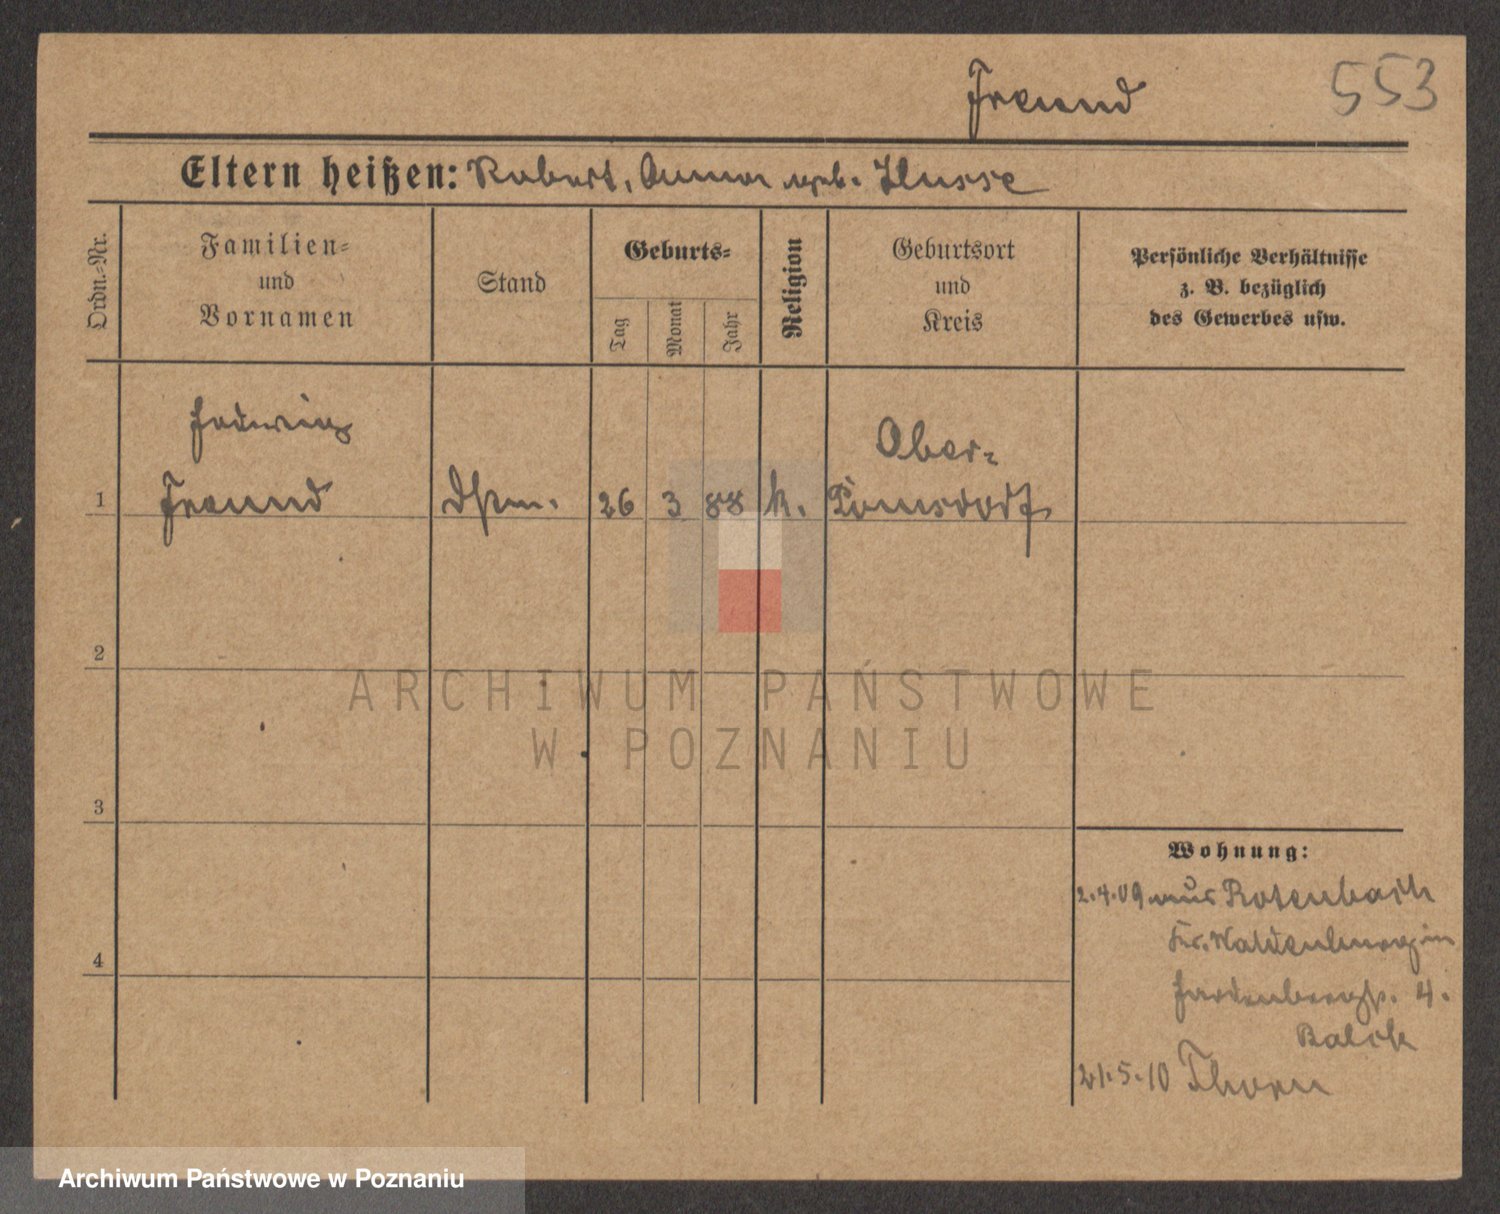 Freund
553
Eltern heißen: Robert, Anna geb. Husse
Ordn.-Nr.
Familien-
und
Vornamen
Stand
Geburts-
Tag
Monat
Jahr
Religion
Geburtsort
und
Kreis
Persönliche Verhältnisse
z. B. bezüglich
des Gewerbes usw.
Hedwig
Ober-
1 Freund Dstm. 26 3 88 k. Pomsdorf
2
3
4
Wohnung:
2.4.09 aus Rotenbach
Kr. Waldenburg in
Hardenbergstr. 4.
Balck
21.5.10 Thorn
ARCHIWUM PAŃSTWOWE
W POZNANIU
Archiwum Państwowe w Poznaniu